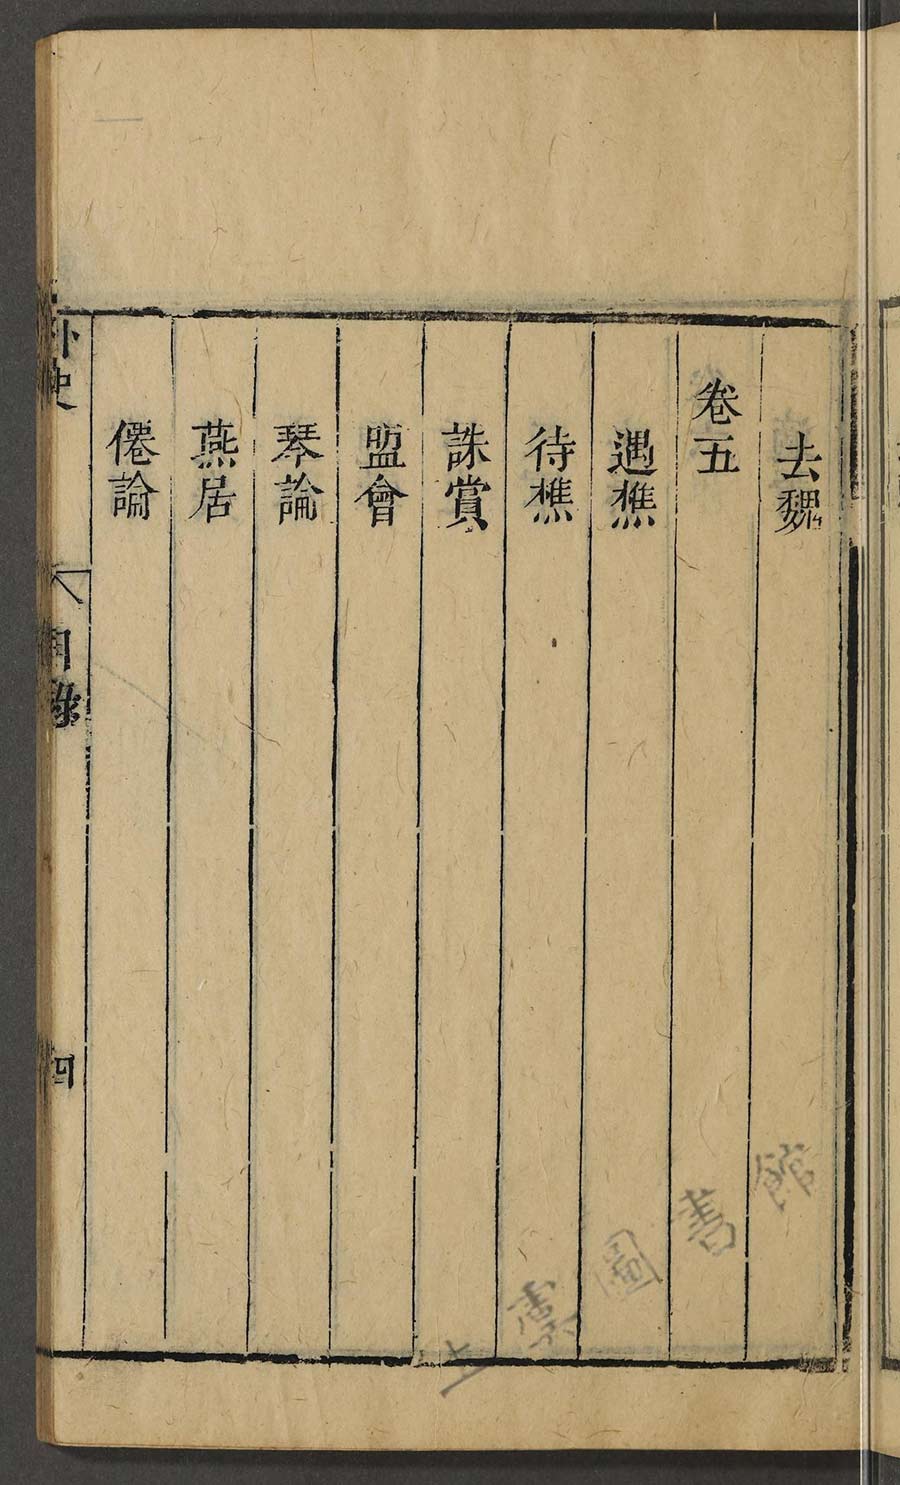 去魏
卷五
遇樵
待樵
誅賞
盟會
琴論
燕居
僊論
外史
目錄
四
圖書館